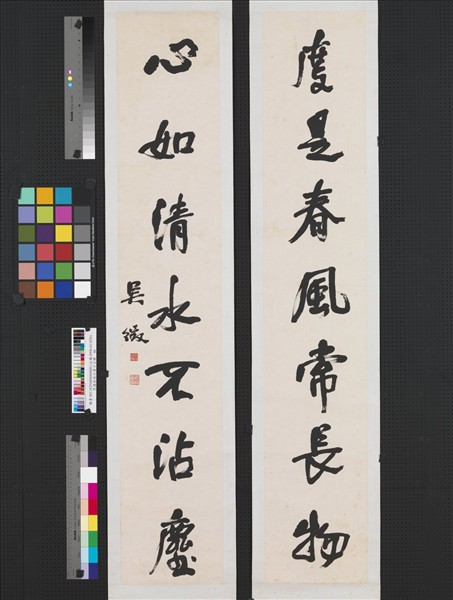 度是春風常長物
心如清水不沾塵
吳徵